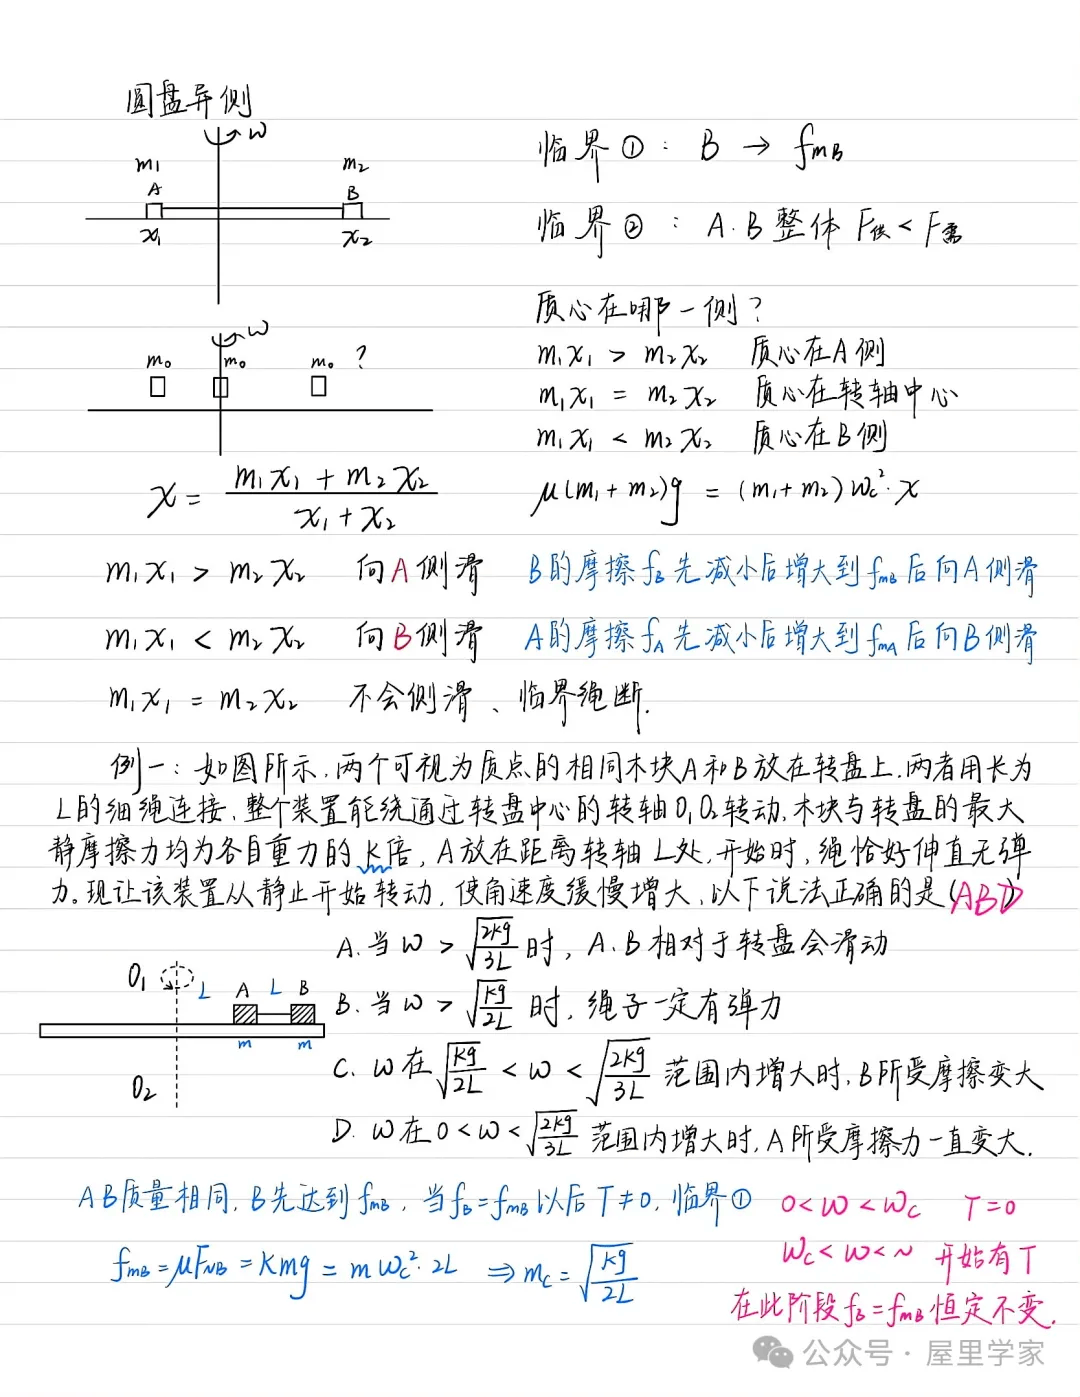 圆盘异侧
ω
m₁ m₂
A B
x₁ x₂
临界①: B → fmB
临界②: A.B整体 F供 < F需
ω
m₀ m₀ m₀ ?
质心在哪一侧?
m₁x₁ > m₂x₂ 质心在A侧
m₁x₁ = m₂x₂ 质心在转轴中心
m₁x₁ < m₂x₂ 质心在B侧
x = (m₁x₁ + m₂x₂)/(x₁ + x₂)
μ(m₁+m₂)g = (m₁+m₂)ωc²·x
m₁x₁ > m₂x₂ 向A侧滑 B的摩擦fB先减小后增大到fmB后向A侧滑
m₁x₁ < m₂x₂ 向B侧滑 A的摩擦fA先减小后增大到fmA后向B侧滑
m₁x₁ = m₂x₂ 不会侧滑、临界绳断.
例一: 如图所示.两个可视为质点的相同木块A和B放在转盘上.两者用长为
L的细绳连接.整个装置能绕通过转盘中心的转轴O₁O₂转动.木块与转盘的最大
静摩擦力均为各自重力的K倍, A放在距离转轴L处.开始时,绳恰好伸直无弹
力。现让该装置从静止开始转动,使角速度缓慢增大、以下说法正确的是(ABD)
A. 当ω > √(2kg/3L) 时, A.B相对于转盘会滑动
B. 当ω > √(kg/2L) 时, 绳子一定有弹力
C. ω在√(kg/2L) < ω < √(2kg/3L) 范围内增大时,B所受摩擦变大
D. ω在0<ω<√(2kg/3L) 范围内增大时,A所受摩擦力一直变大.
O₁ L A L B
m m
O₂
AB质量相同, B先达到fmB, 当fB=fmB以后T≠0, 临界①
fmB = μFNB = Kmg = mωc²·2L ⇒ mc = √(kg/2L)
0<ω<ωc T=0
ωc<ω<~ 开始有T
在此阶段fB=fmB恒定不变.
公众号·屋里学家